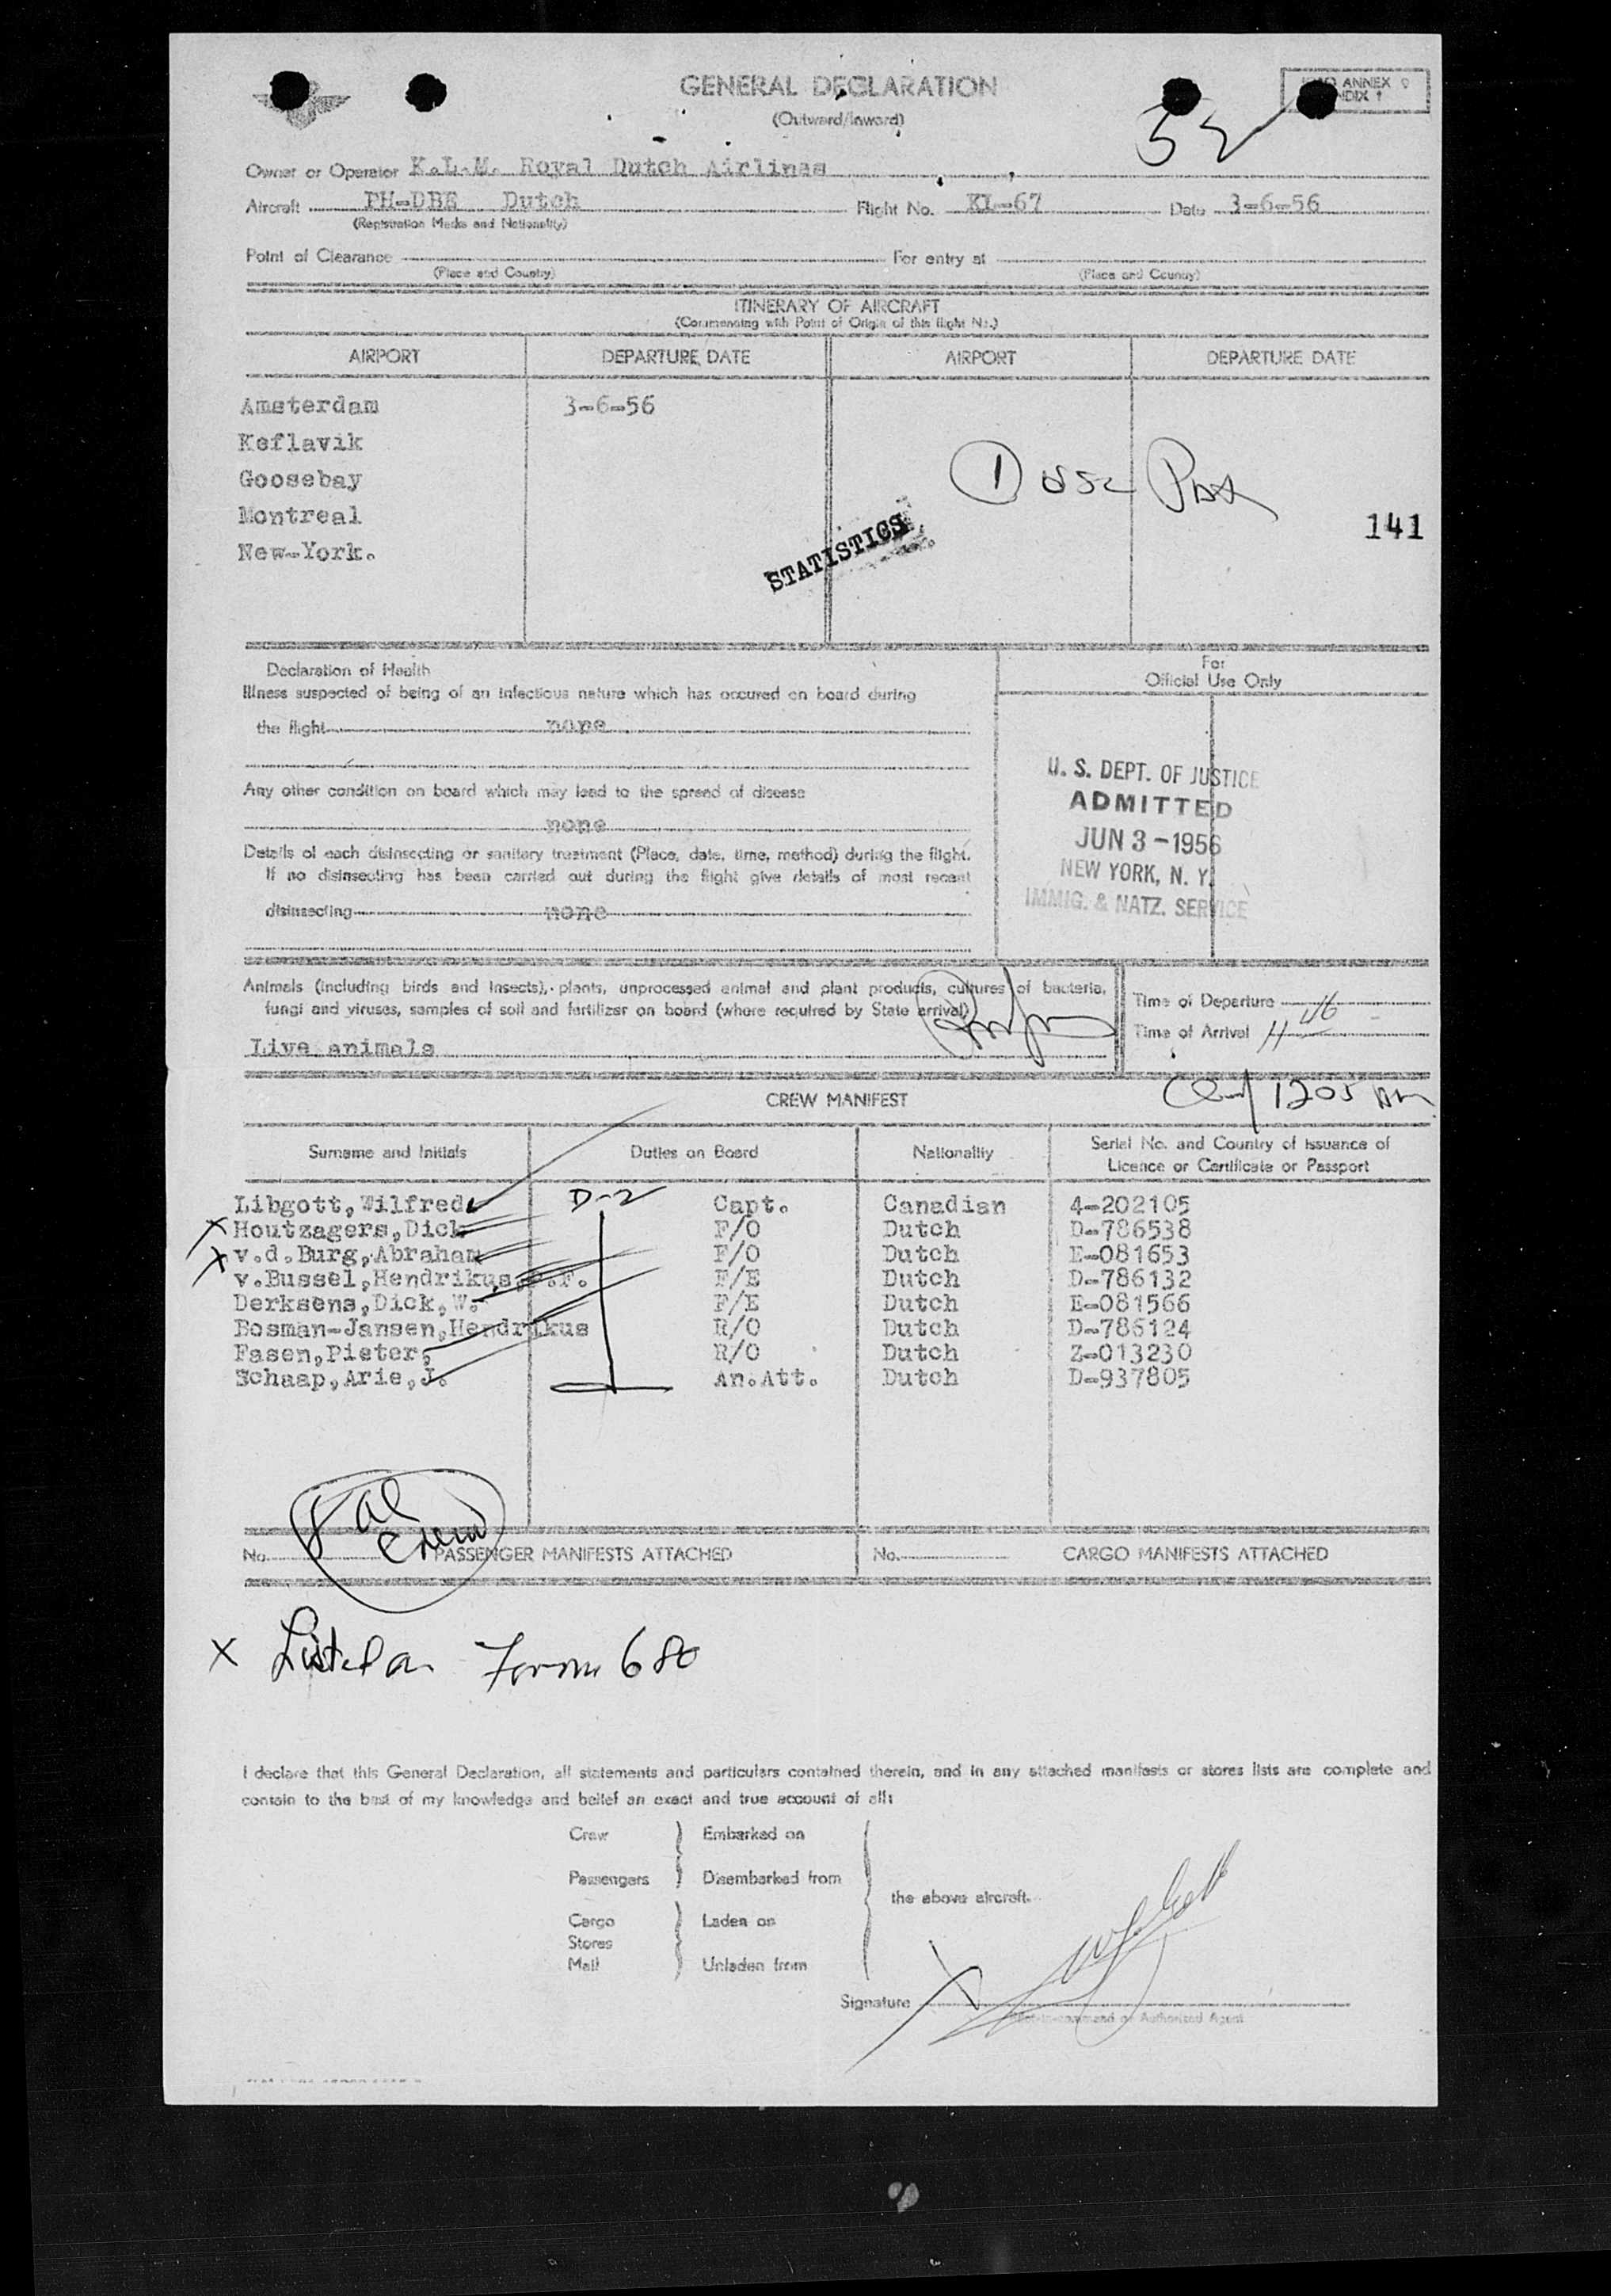 GENERAL DECLARATION
(Outward/Inward)
ANNEX 9
52
Owner or Operator K.L.M. Royal Dutch Airlines
Aircraft PH-DBE Dutch Flight No. KL-67 Date 3-6-56
(Registration Marks and Nationality)
Point of Clearance For entry at
(Place and Country) (Place and Country)
ITINERARY OF AIRCRAFT
(Commencing with Point of Origin of this flight No.)
AIRPORT DEPARTURE DATE AIRPORT DEPARTURE DATE
Amsterdam 3-6-56
Keflavik
Goosebay
Montreal
New-York.
1
141
STATISTICS
Declaration of Health
Illness suspected of being of an infectious nature which has occured on board during
the flight none
Any other condition on board which may lead to the spread of disease
none
Details of each disinsecting or sanitary treatment (Place, date, time, method) during the flight.
If no disinsecting has been carried out during the flight give details of most recent
disinsecting none
For
Official Use Only
U. S. DEPT. OF JUSTICE
ADMITTED
JUN 3 - 1956
NEW YORK, N. Y.
IMMIG. & NATZ. SERVICE
Animals (including birds and insects), plants, unprocessed animal and plant products, cultures of bacteria,
fungi and viruses, samples of soil and fertilizer on board (where required by State arrival)
Live animals
Time of Departure
Time of Arrival 11 46
1205
CREW MANIFEST
Surname and Initials Duties on Board Nationality Serial No. and Country of Issuance of
Licence or Certificate or Passport
Libgott,Wilfred D-2 Capt. Canadian 4-202105
X Houtzagers,Dick F/O Dutch D-786538
X v.d.Burg,Abraham F/O Dutch E-081653
v.Bussel,Hendrikus,P.F. F/E Dutch D-786132
Derksens,Dick,W. F/E Dutch E-081566
Bosman-Jansen,Hendrikus R/O Dutch D-786124
Fasen,Pieter, R/O Dutch Z-013230
Schaap,Arie,J. An.Att. Dutch D-937805
8 al
Crew
No. PASSENGER MANIFESTS ATTACHED No. CARGO MANIFESTS ATTACHED
X Listed on Form 680
I declare that this General Declaration, all statements and particulars contained therein, and in any attached manifests or stores lists are complete and
contain to the best of my knowledge and belief an exact and true account of all:
Crew Embarked on
Passengers Disembarked from
the above aircraft.
Cargo Laden on
Stores
Mail Unladen from
Signature X
Pilot-in-command or Authorized Agent